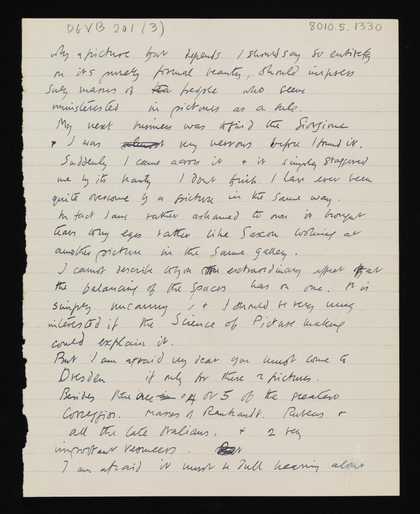 DGVB 201 (3)
8010.5.1330
why a picture that depends I should say so entirely
on its purely formal beauty, should impress
such masses of people who seem
uninterested in pictures as a rule.
My next business was to find the Giorgione
& I was very nervous before I found it.
Suddenly I came across it & it simply staggered
me by its beauty I dont think I have ever been
quite overcome by a picture in the same way.
In fact I am rather ashamed to own it brought
tears to my eyes rather like Saxon looking at
another picture in the same gallery.
I cannot describe to you the extraordinary effect that
the balancing of the spaces has on one. It is
simply uncanny, & I should be very much
interested if the Science of Picture making
could explain it.
But I am afraid my dear you must come to
Dresden if only for these 2 pictures.
Besides there are 4 or 5 of the greatest
Correggios. masses of Rembrandt. Rubens &
all the late Italians. & 2 very
important Vermeers.
I am afraid it must be dull hearing about